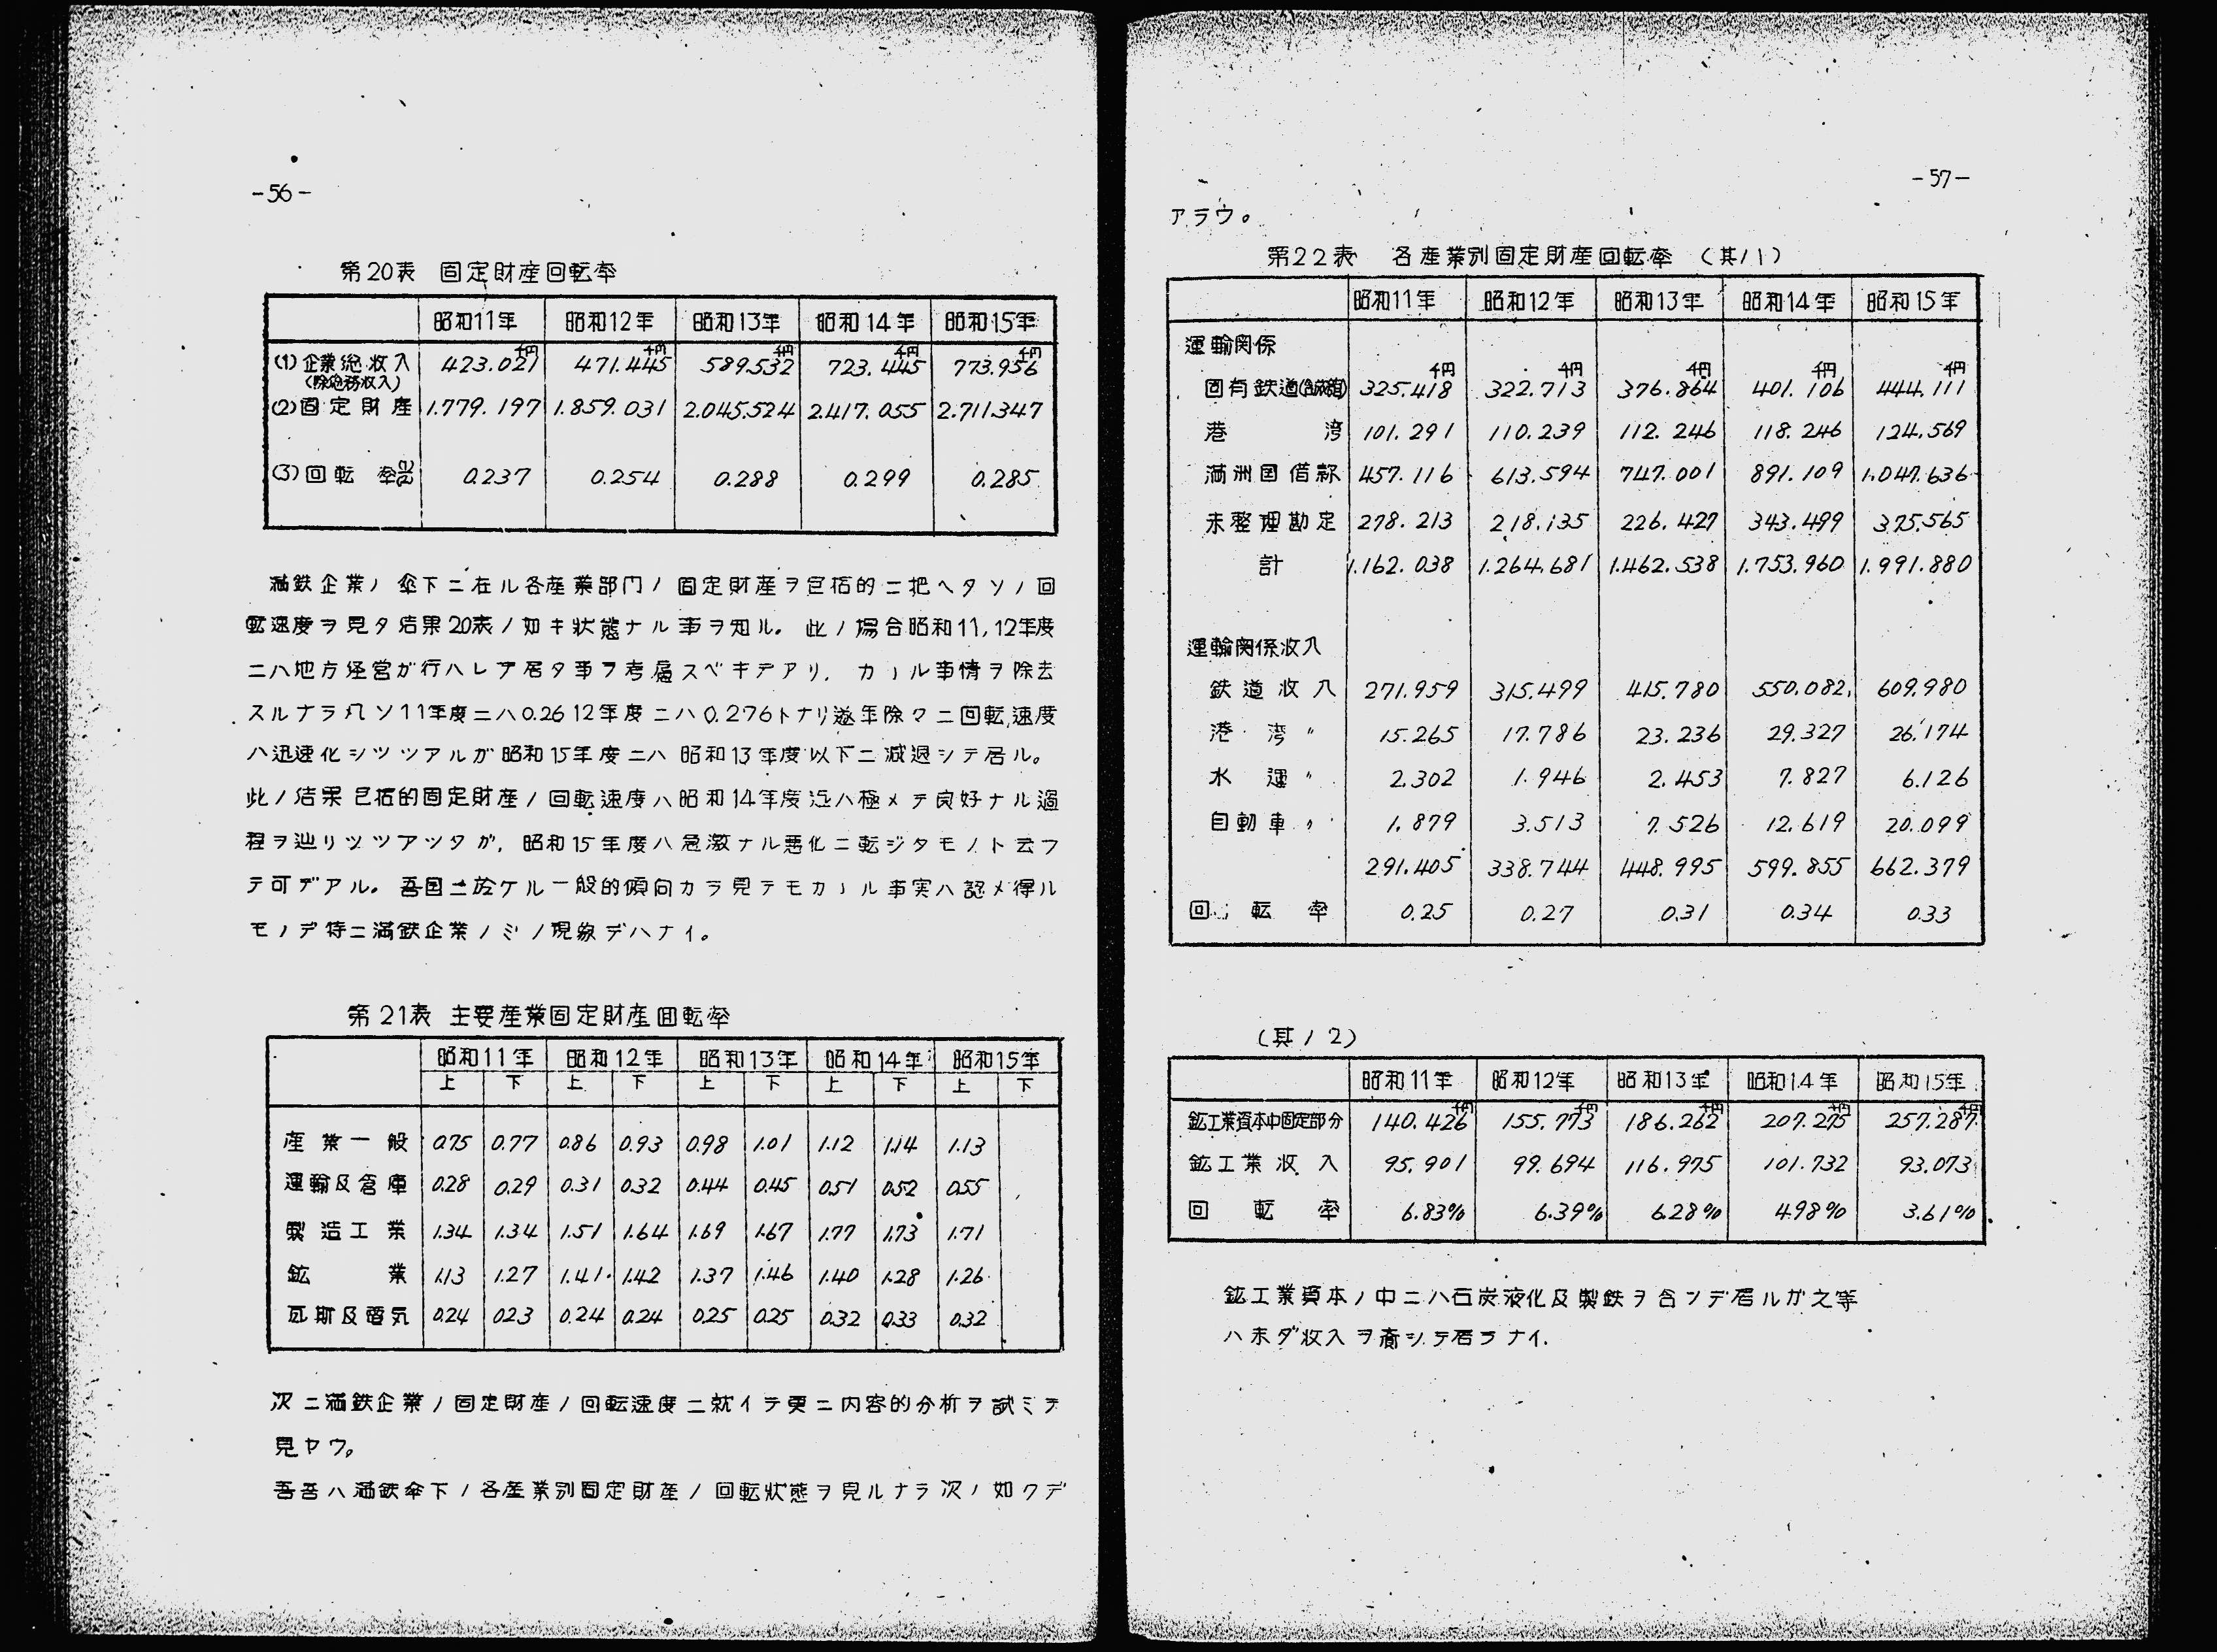 -56-
第20表 固定財産回転率
昭和11年 昭和12年 昭和13年 昭和14年 昭和15年
千円 千円 千円 千円 千円
(1)企業総収入 423.021 471.445 589.532 723.445 773.956
(除総務収入)
(2)固定財産 1.779.197 1.859.031 2.045.524 2.417.055 2.711.347
(3)回転率 0.237 0.254 0.288 0.299 0.285
満鉄企業ノ傘下ニ在ル各産業部門ノ固定財産ヲ包括的ニ把ヘタソノ回
転速度ヲ見タ結果20表ノ如キ状態ナル事ヲ知ル。此ノ場合昭和11,12年度
ニハ地方経営が行ハレテ居タ事ヲ考慮スベキデアリ,カヽル事情ヲ除去
スルナラバソ11年度ニハ0.26 12年度ニハ0.276トナリ逐年除々ニ回転速度
ハ迅速化シツツアルガ昭和15年度ニハ昭和13年度以下ニ減退シテ居ル。
此ノ結果包括的固定財産ノ回転速度ハ昭和14年度迄ハ極メテ良好ナル過
程ヲ辿リツツアツタガ,昭和15年度ハ急激ナル悪化ニ転ジタモノト云フ
テ可デアル。吾国ニ於ケル一般的傾向カラ見テモカヽル事実ハ認メ得ル
モノデ特ニ満鉄企業ノミノ現象デハナイ。
第21表 主要産業固定財産回転率
昭和11年 昭和12年 昭和13年 昭和14年 昭和15年
上 下 上 下 上 下 上 下 上 下
産業一般 0.75 0.77 0.86 0.93 0.98 1.01 1.12 1.14 1.13
運輸及倉庫 0.28 0.29 0.31 0.32 0.44 0.45 0.51 0.52 0.55
製造工業 1.34 1.34 1.51 1.64 1.69 1.67 1.77 1.73 1.71
鉱業 1.13 1.27 1.41 1.42 1.37 1.46 1.40 1.28 1.26
瓦斯及電気 0.24 0.23 0.24 0.24 0.25 0.25 0.32 0.33 0.32
次ニ満鉄企業ノ固定財産ノ回転速度ニ就イテ更ニ内容的分析ヲ試ミテ
見ヤウ。
吾吾ハ満鉄傘下ノ各産業別固定財産ノ回転状態ヲ見ルナラ次ノ如クデ
-57-
アラウ。
第22表 各産業別固定財産回転率 (其ノ1)
昭和11年 昭和12年 昭和13年 昭和14年 昭和15年
運輸関係
千円 千円 千円 千円 千円
固有鉄道 325.418 322.713 376.864 401.106 444.111
港湾 101.291 110.239 112.246 118.246 124.569
満洲国借款 457.116 613.594 747.001 891.109 1.047.636
未整理勘定 278.213 218.135 226.427 343.499 375.565
計 1.162.038 1.264.681 1.462.538 1.753.960 1.991.880
運輸関係収入
鉄道収入 271.959 315.499 415.780 550.082 609.980
港湾〃 15.265 17.786 23.236 29.327 26.174
水運〃 2.302 1.946 2.453 7.827 6.126
自動車〃 1.879 3.513 7.526 12.619 20.099
291.405 338.744 448.995 599.855 662.379
回転率 0.25 0.27 0.31 0.34 0.33
(其ノ2)
昭和11年 昭和12年 昭和13年 昭和14年 昭和15年
千円 千円 千円 千円 千円
鉱工業資本中固定部分 140.426 155.773 186.262 207.275 257.287
鉱工業収入 95.901 99.694 116.975 101.732 93.073
回転率 6.83% 6.39% 6.28% 4.98% 3.61%
鉱工業資本ノ中ニハ石炭液化及製鉄ヲ含ンデ居ルガ之等
ハ未ダ収入ヲ齎シテ居ラナイ.